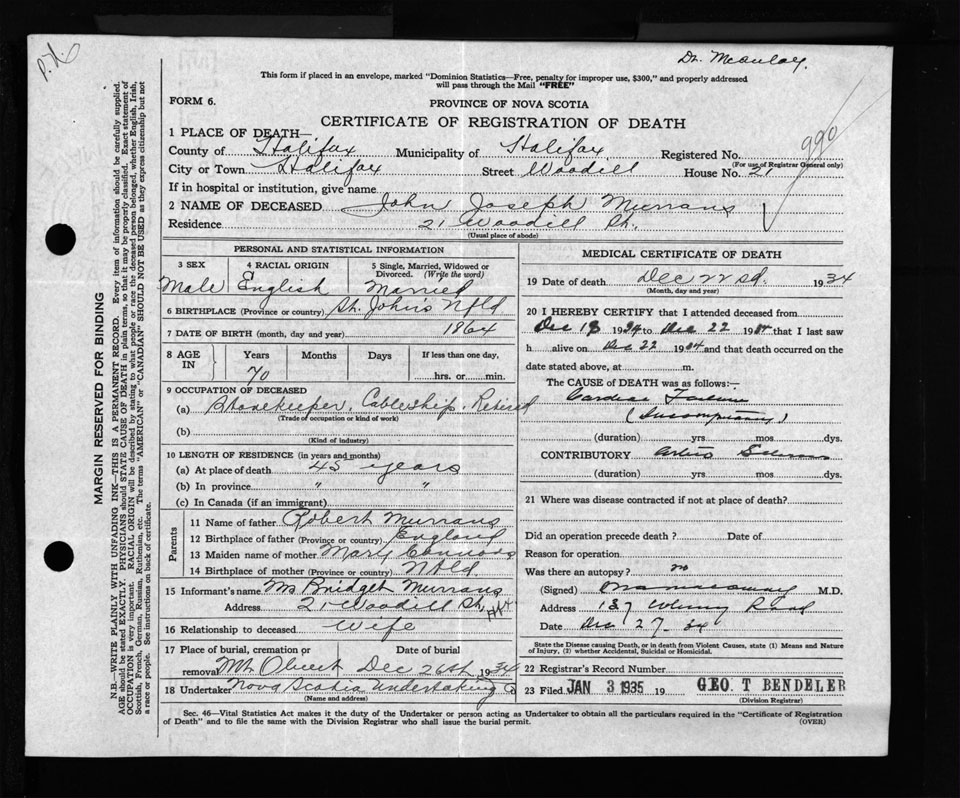 P.X.
Dr. McAulay.
This form if placed in an envelope, marked "Dominion Statistics—Free, penalty for improper use, $300," and properly addressed
will pass through the Mail "FREE"
FORM 6.
PROVINCE OF NOVA SCOTIA
CERTIFICATE OF REGISTRATION OF DEATH
990
1 PLACE OF DEATH—
County of Halifax Municipality of Halifax Registered No.
(For use of Registrar General only)
City or Town Halifax Street Woodill House No. 21
If in hospital or institution, give name
2 NAME OF DECEASED John Joseph Murrans
Residence 21 Woodill St.
(Usual place of abode)
PERSONAL AND STATISTICAL INFORMATION
3 SEX 4 RACIAL ORIGIN 5 Single, Married, Widowed or
Divorced. (Write the word)
Male English Married
6 BIRTHPLACE (Province or country) St. John's Nfld
7 DATE OF BIRTH (month, day and year) 1864
8 AGE IN Years Months Days If less than one day,
70 hrs. or min.
9 OCCUPATION OF DECEASED
(a) Storekeeper, Cableship, Retired
(Trade of occupation or kind of work)
(b)
(Kind of industry)
10 LENGTH OF RESIDENCE (in years and months)
(a) At place of death 45 years
(b) In province " "
(c) In Canada (if an immigrant)
Parents
11 Name of father Robert Murrans
12 Birthplace of father (Province or country) England
13 Maiden name of mother Mary Connors
14 Birthplace of mother (Province or country) Nfld
15 Informant's name Ms Bridget Murrans
Address 21 Woodill St. Hfx
16 Relationship to deceased wife
17 Place of burial, cremation or Date of burial
removal Mt Olivet Dec 26th, 1934
18 Undertaker Nova Scotia Undertaking Co
(Name and address)
MEDICAL CERTIFICATE OF DEATH
19 Date of death Dec 22 nd. 1934
(Month, day and year)
20 I HEREBY CERTIFY that I attended deceased from
Dec 1934 to Dec 22 1934 that I last saw
h alive on Dec 22 1934 and that death occurred on the
date stated above, at m.
The CAUSE OF DEATH was as follows:—
Cardiac Failure
(duration) yrs mos dys.
CONTRIBUTORY Arterio Sclerosis
(duration) yrs. mos. dys.
21 Where was disease contracted if not at place of death?
Did an operation precede death ? Date of
Reason for operation
Was there an autopsy? no
(Signed) M.D.
Address 137 Road
Date Dec 27 - 34
State the Disease causing Death, or in death from Violent Causes, state (1) Means and Nature
of Injury, (2) whether Accidental, Suicidal or Homicidal.
22 Registrar's Record Number
23 Filed JAN 3 1935 19 GEO. T BENDELER
(Division Registrar)
Sec. 46—Vital Statistics Act makes it the duty of the Undertaker or person acting as Undertaker to obtain all the particulars required in the "Certificate of Registration
of Death" and to file the same with the Division Registrar who shall issue the burial permit.
(OVER)
MARGIN RESERVED FOR BINDING
N.B.—WRITE PLAINLY WITH UNFADING INK—THIS IS A PERMANENT RECORD. Every item of information should be carefully supplied.
AGE should be stated EXACTLY. PHYSICIANS should STATE CAUSE OF DEATH in plain terms, so that it may be properly classified. Exact statement of
OCCUPATION is very important. RACIAL ORIGIN will be described by stating to what people or race the deceased person belonged, whether English, Irish,
Scottish, French, German, Russian, Ruthenian, etc. The terms "AMERICAN" or "CANADIAN" SHOULD NOT BE USED as they express citizenship but not
a race or people. See instructions on back of certificate.